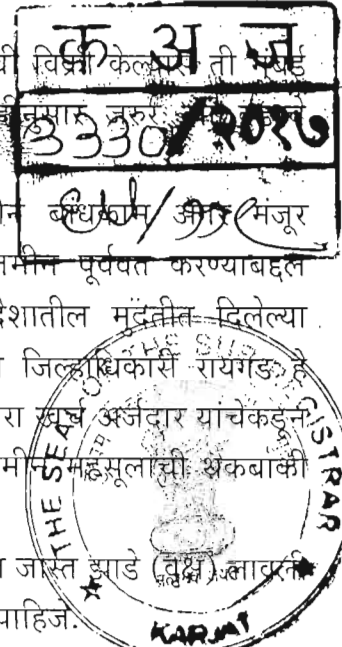 क अ ज
ची विक्री केल्यास ती मुंबई
3330/२०१७
बांधकाम अगर मंजूर
जमीन पूर्ववत करण्याबद्दल
देशातील मुदतीत दिलेल्या
जिल्हाधिकारी रायगड हे
रा खर्च अर्जदार याचेकडून
जमीन महसूलाची थकबाकी
जास्त झाडे (वृक्ष) लावली
पाहिजे.
THE SEAL OF THE SUB REGISTRAR
KARJAT